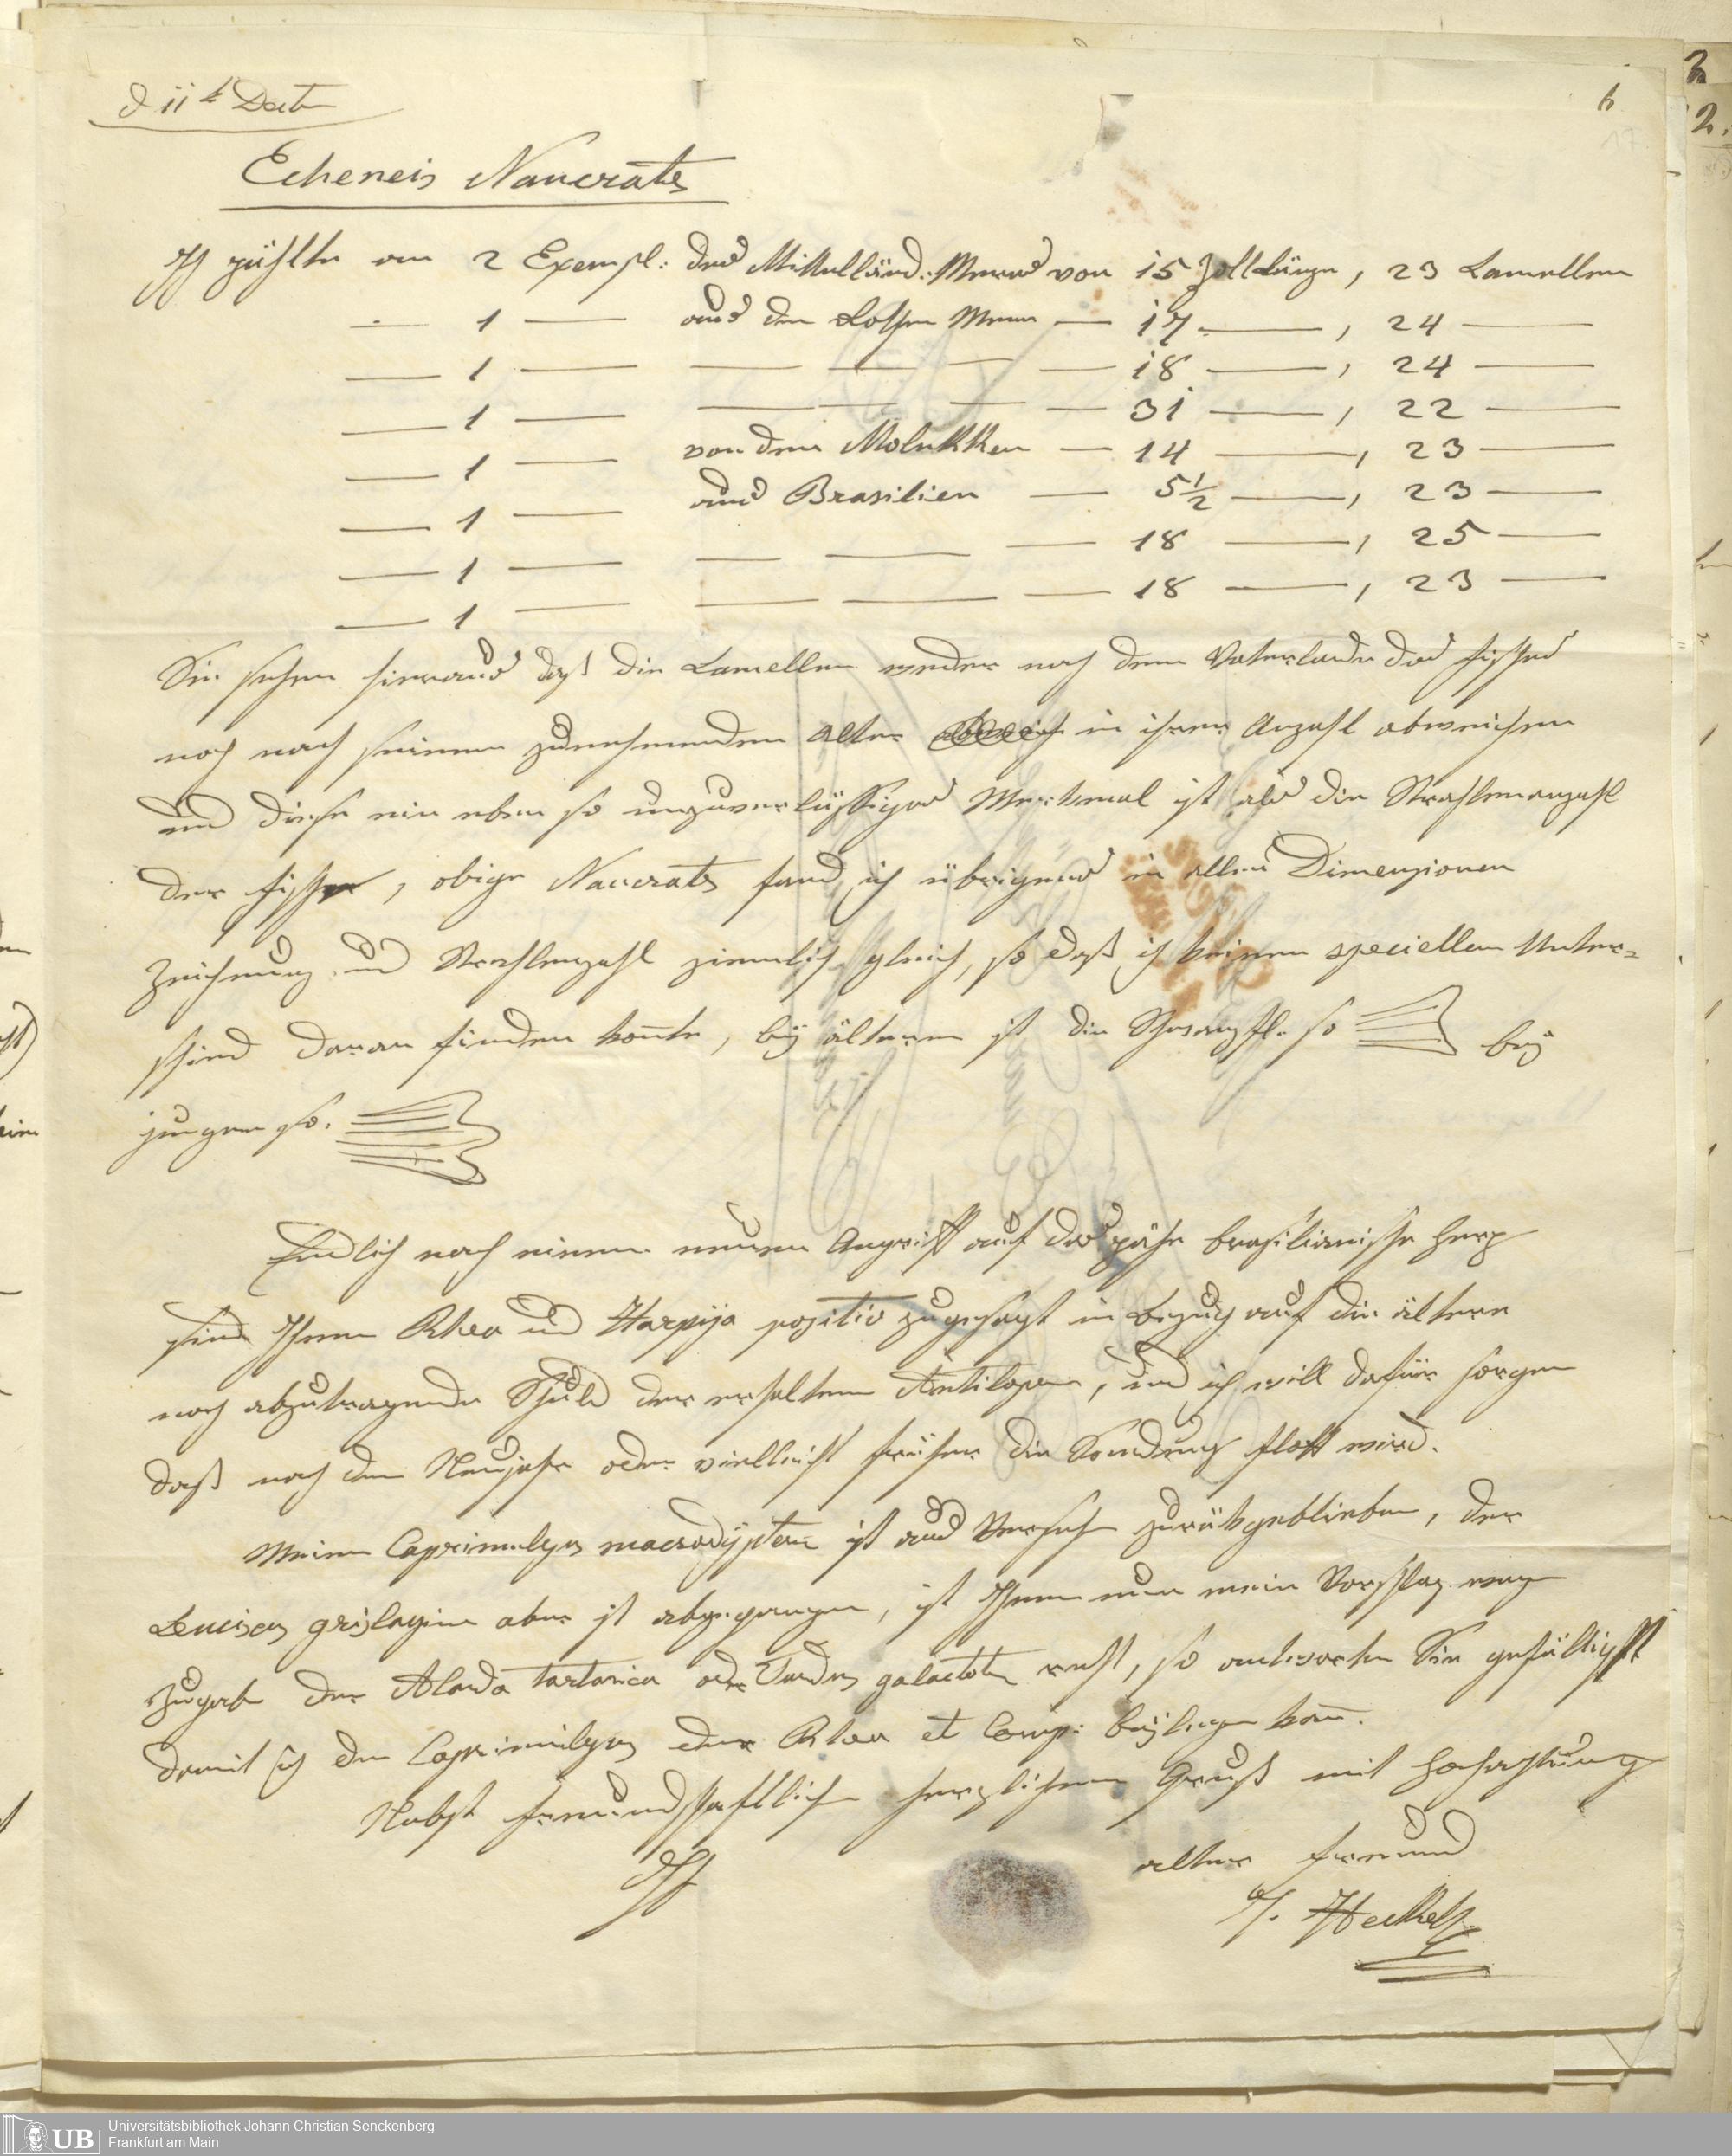 d 11t Dectr
6
17
Echeneis Naucrates
Ich zählte an 2 Exempl: des Mittelländ: Meeres von 15 Zoll Länge, 23 Lamellen
— 1 — aus dem Rothen Meere — 17 —, 24 —
— 1 — — — — — 18 —, 24 —
— 1 — — — — — 31 —, 22 —
— 1 — von den Molukken — 14 —, 23 —
— 1 — aus Brasilien — 5½ —, 23 —
— 1 — — — — 18 —, 25 —
— 1 — — — — 18 —, 23 —
Sie sehen hieraus daß die Lamellen weder nach dem Vaterlande des Fisches
noch nach seinem zunehmenden Alter in ihrer Anzahl abweichen
und diese ein eben so unzuverläßiges Merkmal ist als die Strahlenanzahl
der Fische, obige Naucrates fand ich übrigens in allen Dimenzionen
Zeichnung und Strahlenzahl ziemlich gleich, so daß ich keinen speciellen Unter=
schied daran finden konnte, bey älteren ist die Schwanzfl. so bey
jungen so.
Endlich nach einem neuen Angriff auf das zähe brasilianische Herz
sind Ihnen Rhea und Harpija positiv zugesagt in Bezug auf die ältere
noch abzutragende Schuld der erhaltenen Antilopen, und ich will dafür sorgen
daß nach dem Neujahr oder vielleicht früher die Sendung flott wird.
Meinen Caprimulgus macrodipterus ist aus Versehen zurükgeblieben, der
Leuciscus grislagine aber ist abgegangen, ist Ihnen nun mein Vorschlag wegen
Zugabe der Alauda tartarica oder Turdus galactotes recht, so antworten Sie gefälligst
damit ich den Caprimulgus der Rhea et Comp: beylegen kann.
Nebst freundschaftlich herzlichem Gruß mit Hochachtung
Ihr
alter Freund
J. Heckel
UB Universitätsbibliothek Johann Christian Senckenberg
Frankfurt am Main